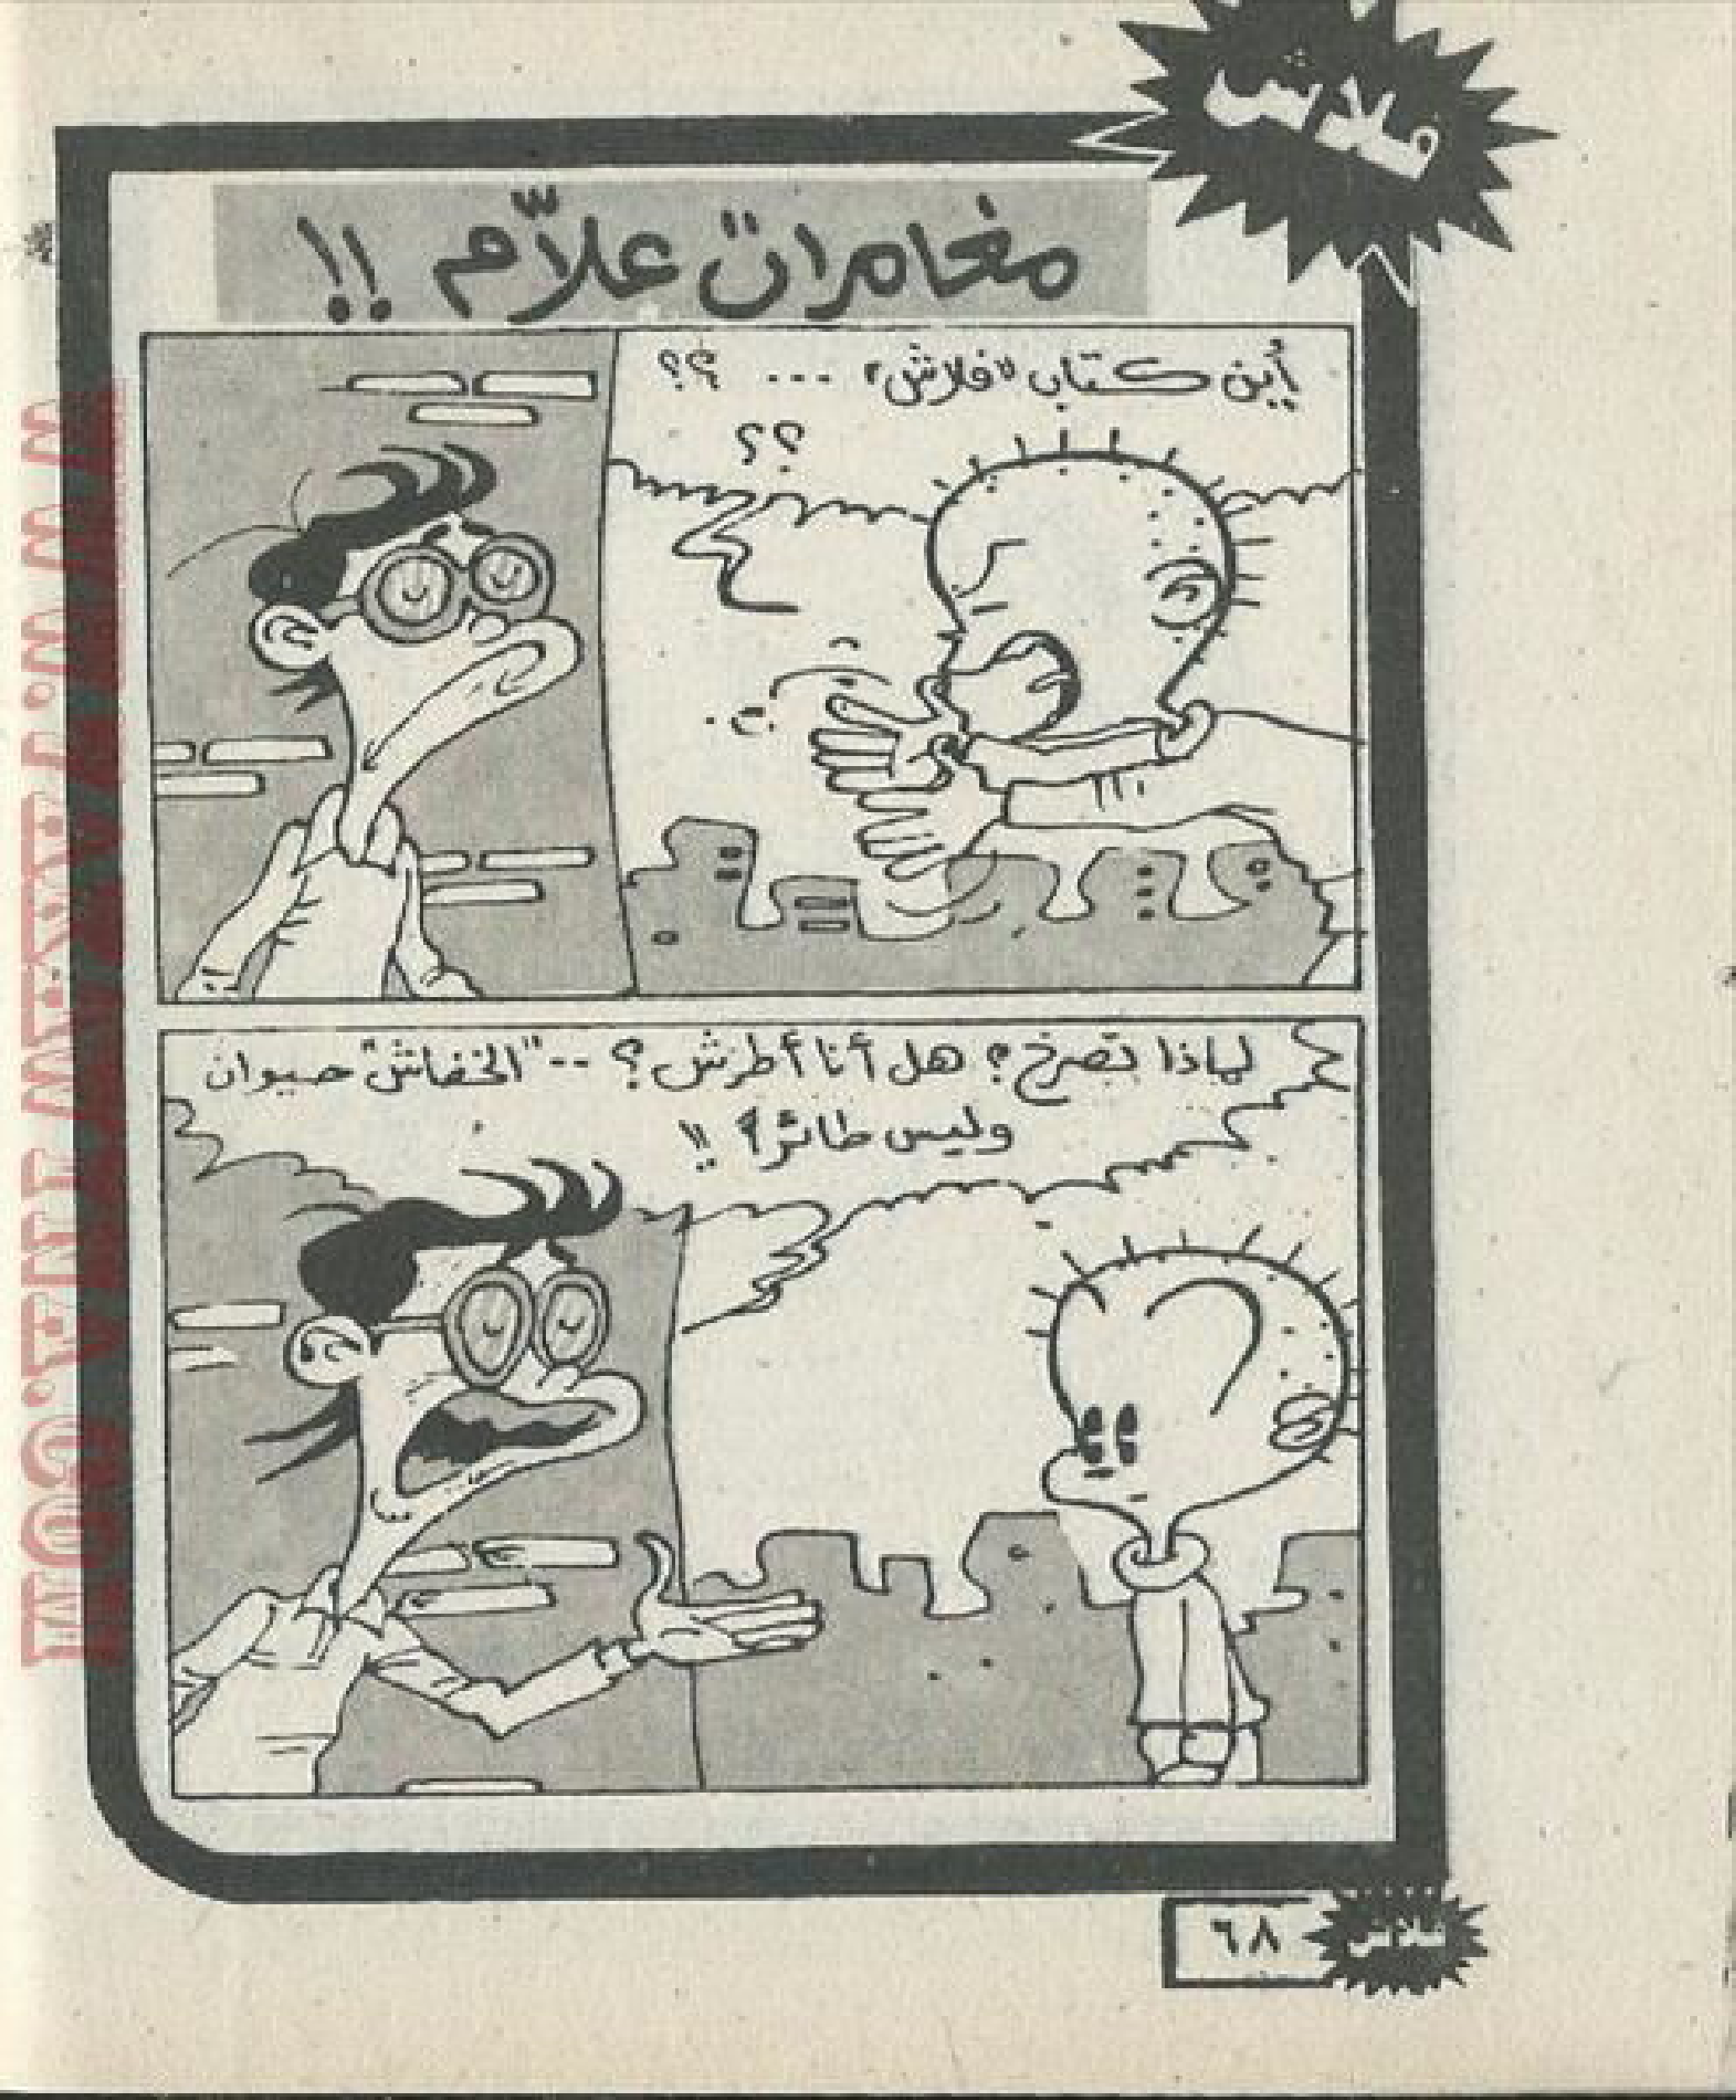 فلاش
مغامرات علاّم !!
أين كتاب "فلاش" ... ؟؟
؟؟
لماذا تصرخ؟ هل أنا أطرش؟ -- "الخفاش" حيوان
وليس طائر؟ !!
٦٨
فلاش